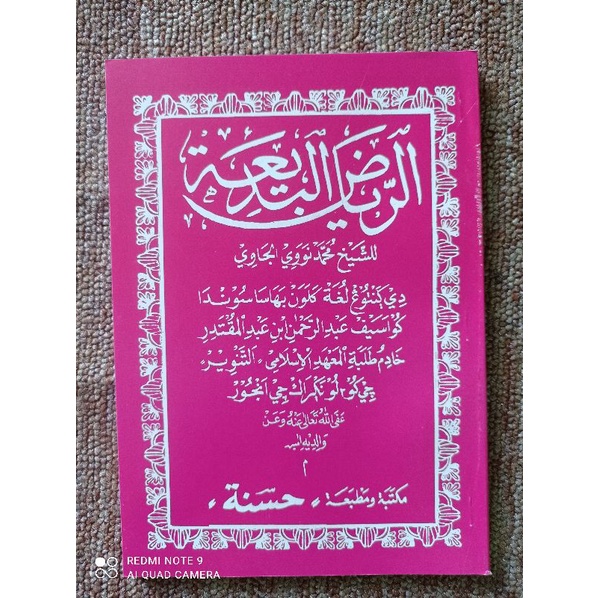 الرياض البديعة
للشيخ محمد نووي الجاوي
دي كنتوڠ لغة كلون بهاسا سوندا
كو اسيف عبد الرحمن ابن عبد المقتدر
خادم طلبة المعهد الإسلامي، التنوير،
عفى الله تعالى عنه وعن
والديه
م
مكتبة ومطبعة، حسنة،
REDMI NOTE 9
AI QUAD CAMERA